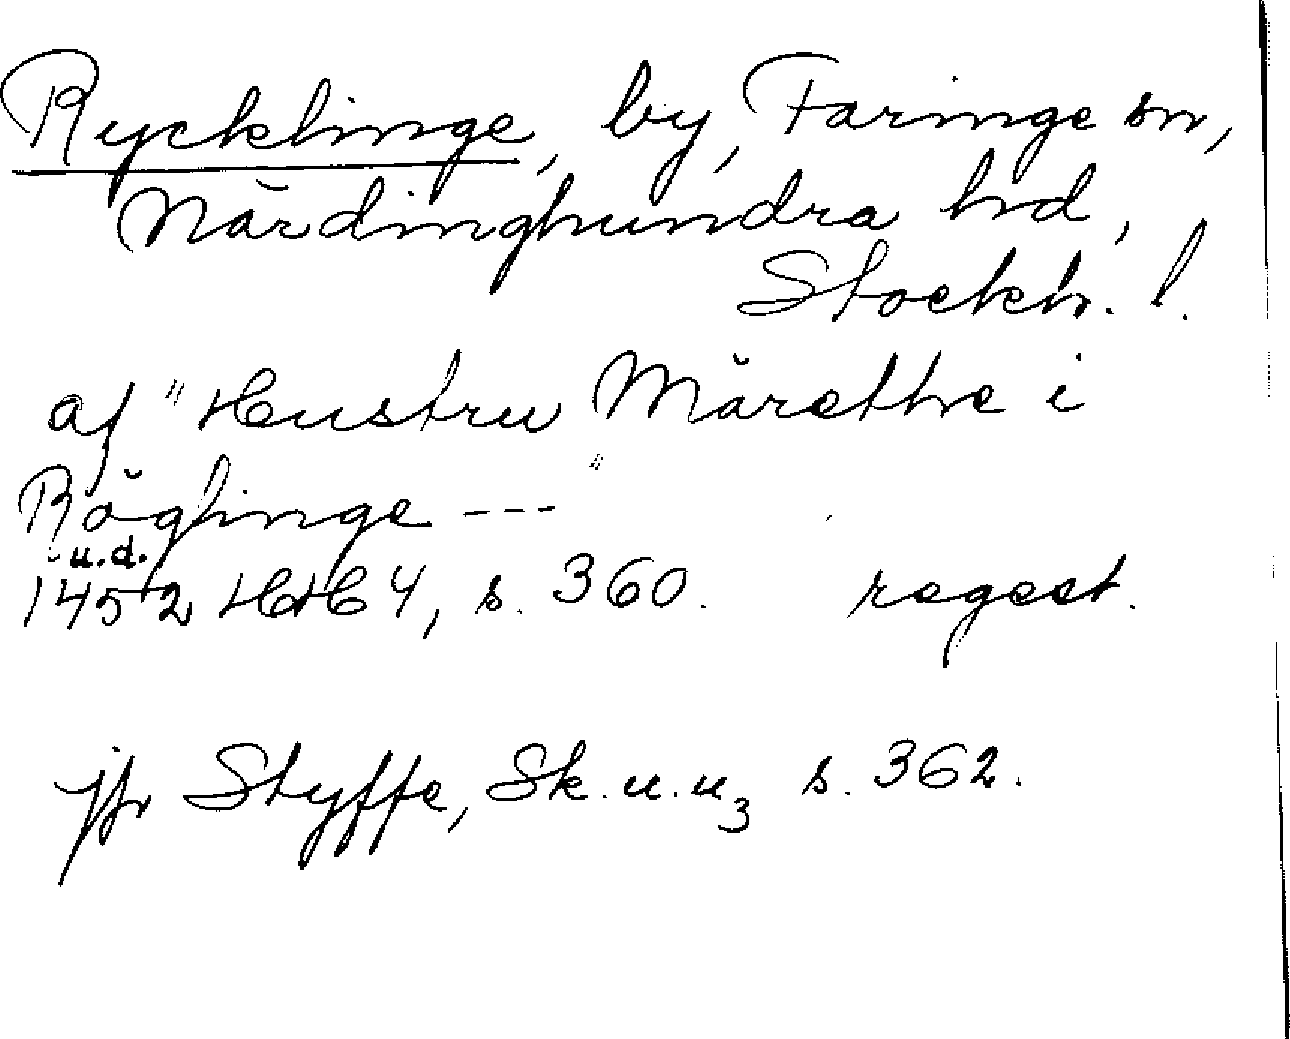 Rycklinge, by, Faringe sn,
Närdinghundra hd,
Stockh. l.
af "Hustru Märethe i
Röglinge ---"
u.d.
1452 HH 4, s. 360. regest.
jfr Styffe, Sk.u.u3 s. 362.